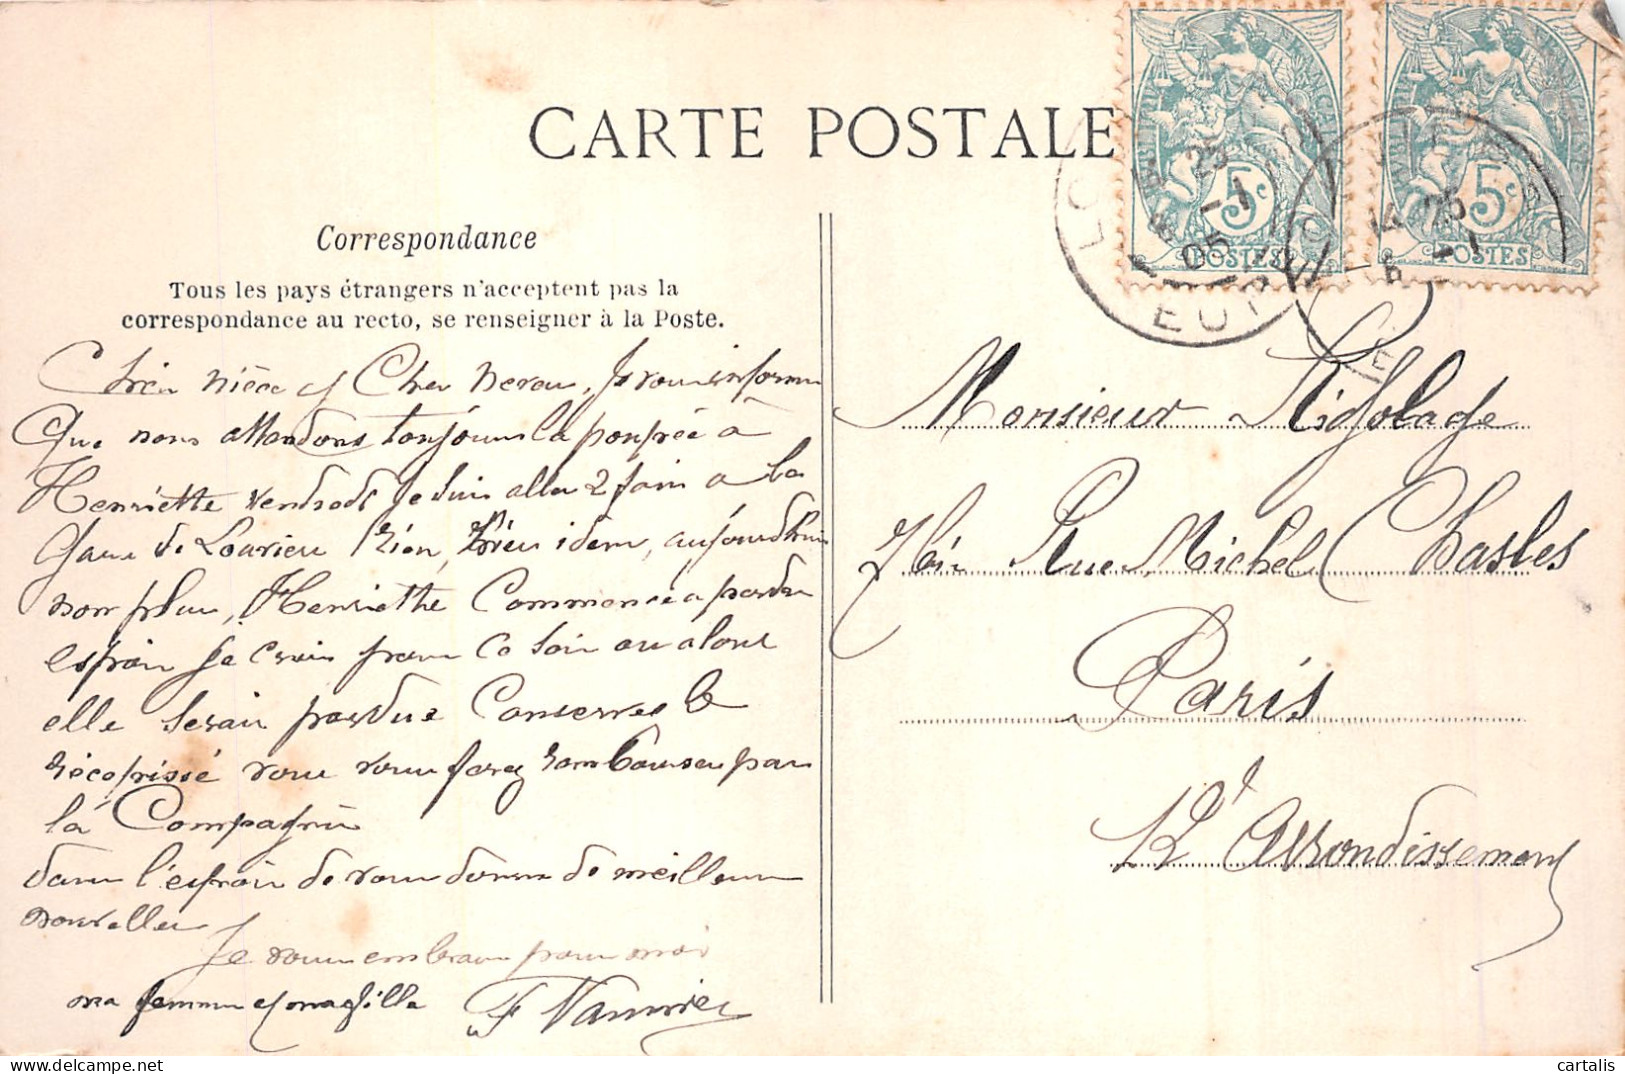 CARTE POSTALE
Correspondance
Tous les pays étrangers n'acceptent pas la
correspondance au recto, se renseigner à la Poste.
nièce et Cher Neveu, Je vous informe
Que nous attendons toujours la poupée à
Henriette vendredi Je suis allé 2 fois a la
Gare de Rien, idem, aujourdhui
non plus, Henriette Commence a perdre
espoir Je crois pour ce soir ou alors
elle serait perdue Conservez le
récépissé vous vous ferez rembourser par
la Compagnie
dans l'espoir de vous donner de meilleurs
nouvelles
Je vous embrasse pour moi
ma femme et ma fille F Vannier
Monsieur
Rue Michel Chasles
Paris
12e Arrondissement
RÉPUBLIQUE FRANÇAISE
5c
POSTES
5c
POSTES
25
-1
05
25
-1
delcampe.net
cartalis